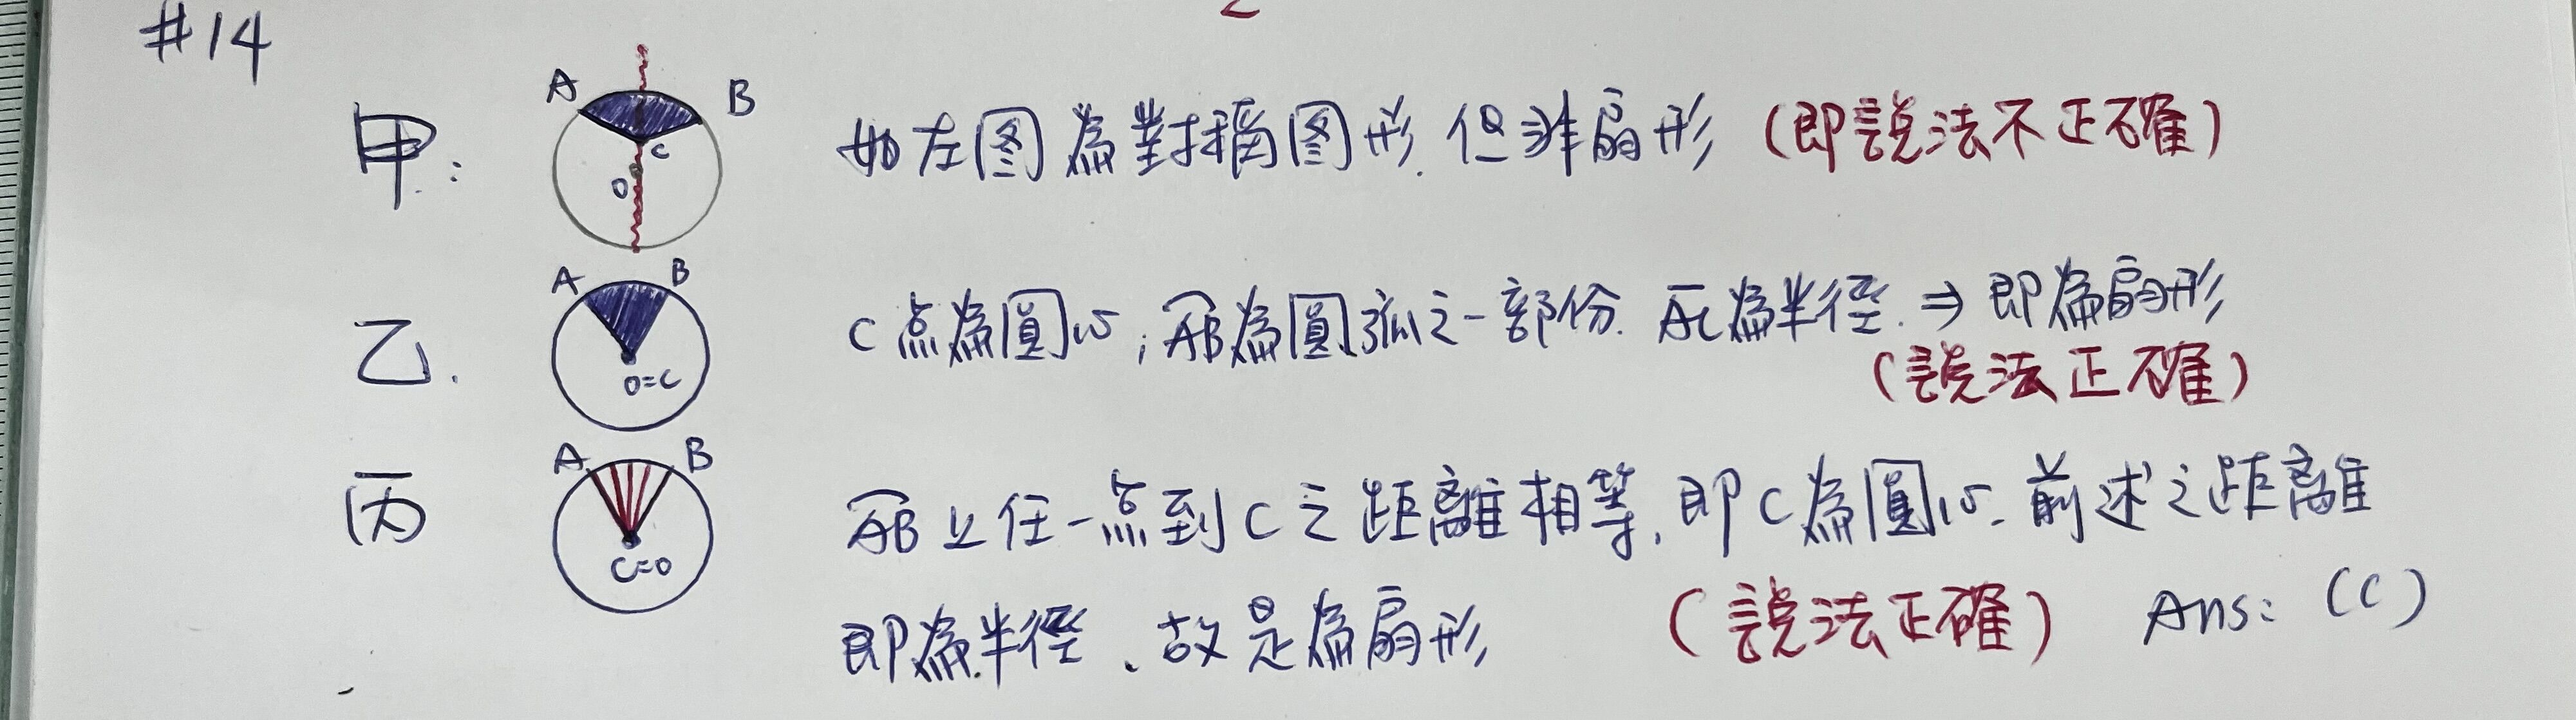 #14
甲:
A
B
C
O
如左图為對稱图形.但非扇形 (即說法不正確)
乙.
A
B
O=C
C点為圓心;AB為圓弧之一部份. AC為半徑.⇒即為扇形
(說法正確)
丙
A
B
C=O
AB上任一点到C之距離相等,即C為圓心.前述之距離
即為半徑、故是為扇形 (說法正確) Ans: (C)